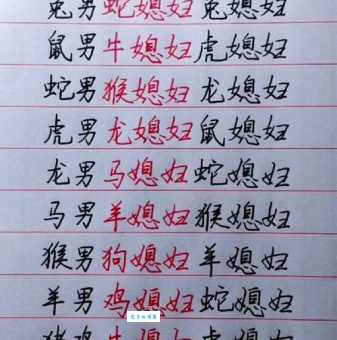 兔男蛇媳妇兔媳妇
鼠男牛媳妇虎媳妇
蛇男猴媳妇龙媳妇
虎男龙媳妇鼠媳妇
龙男马媳妇蛇媳妇
马男羊媳妇猴媳妇
猴男狗媳妇羊媳妇
羊男鸡媳妇蛇媳妇